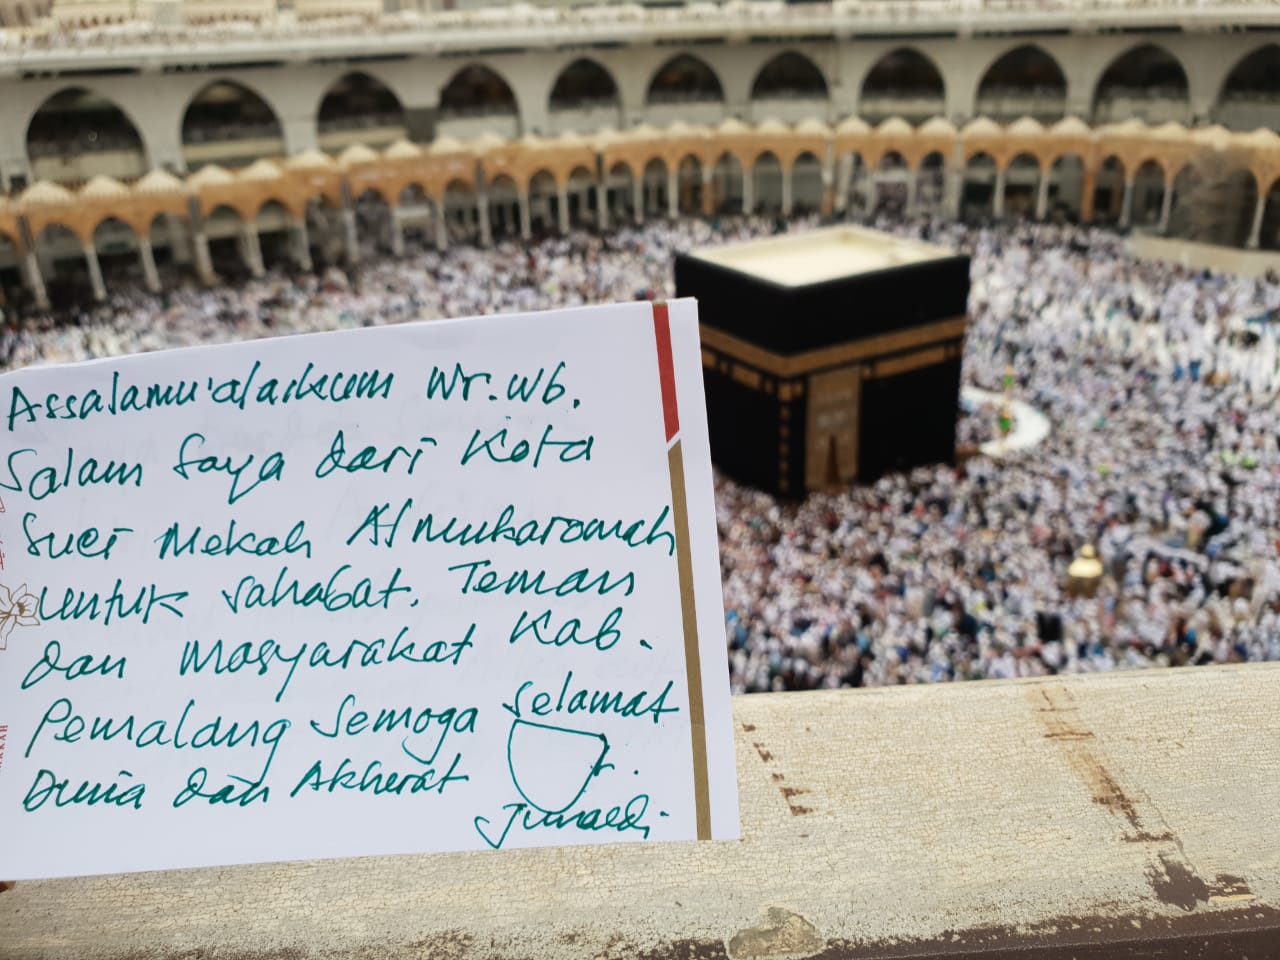 Assalamu'alaikum Wr. Wb.
Salam Saya dari Kota
Suci Mekah Almukaromah
untuk sahabat. Teman
dan Masyarakat Kab.
Pemalang Semoga Selamat
Dunia dan Akherat
Junaedi.